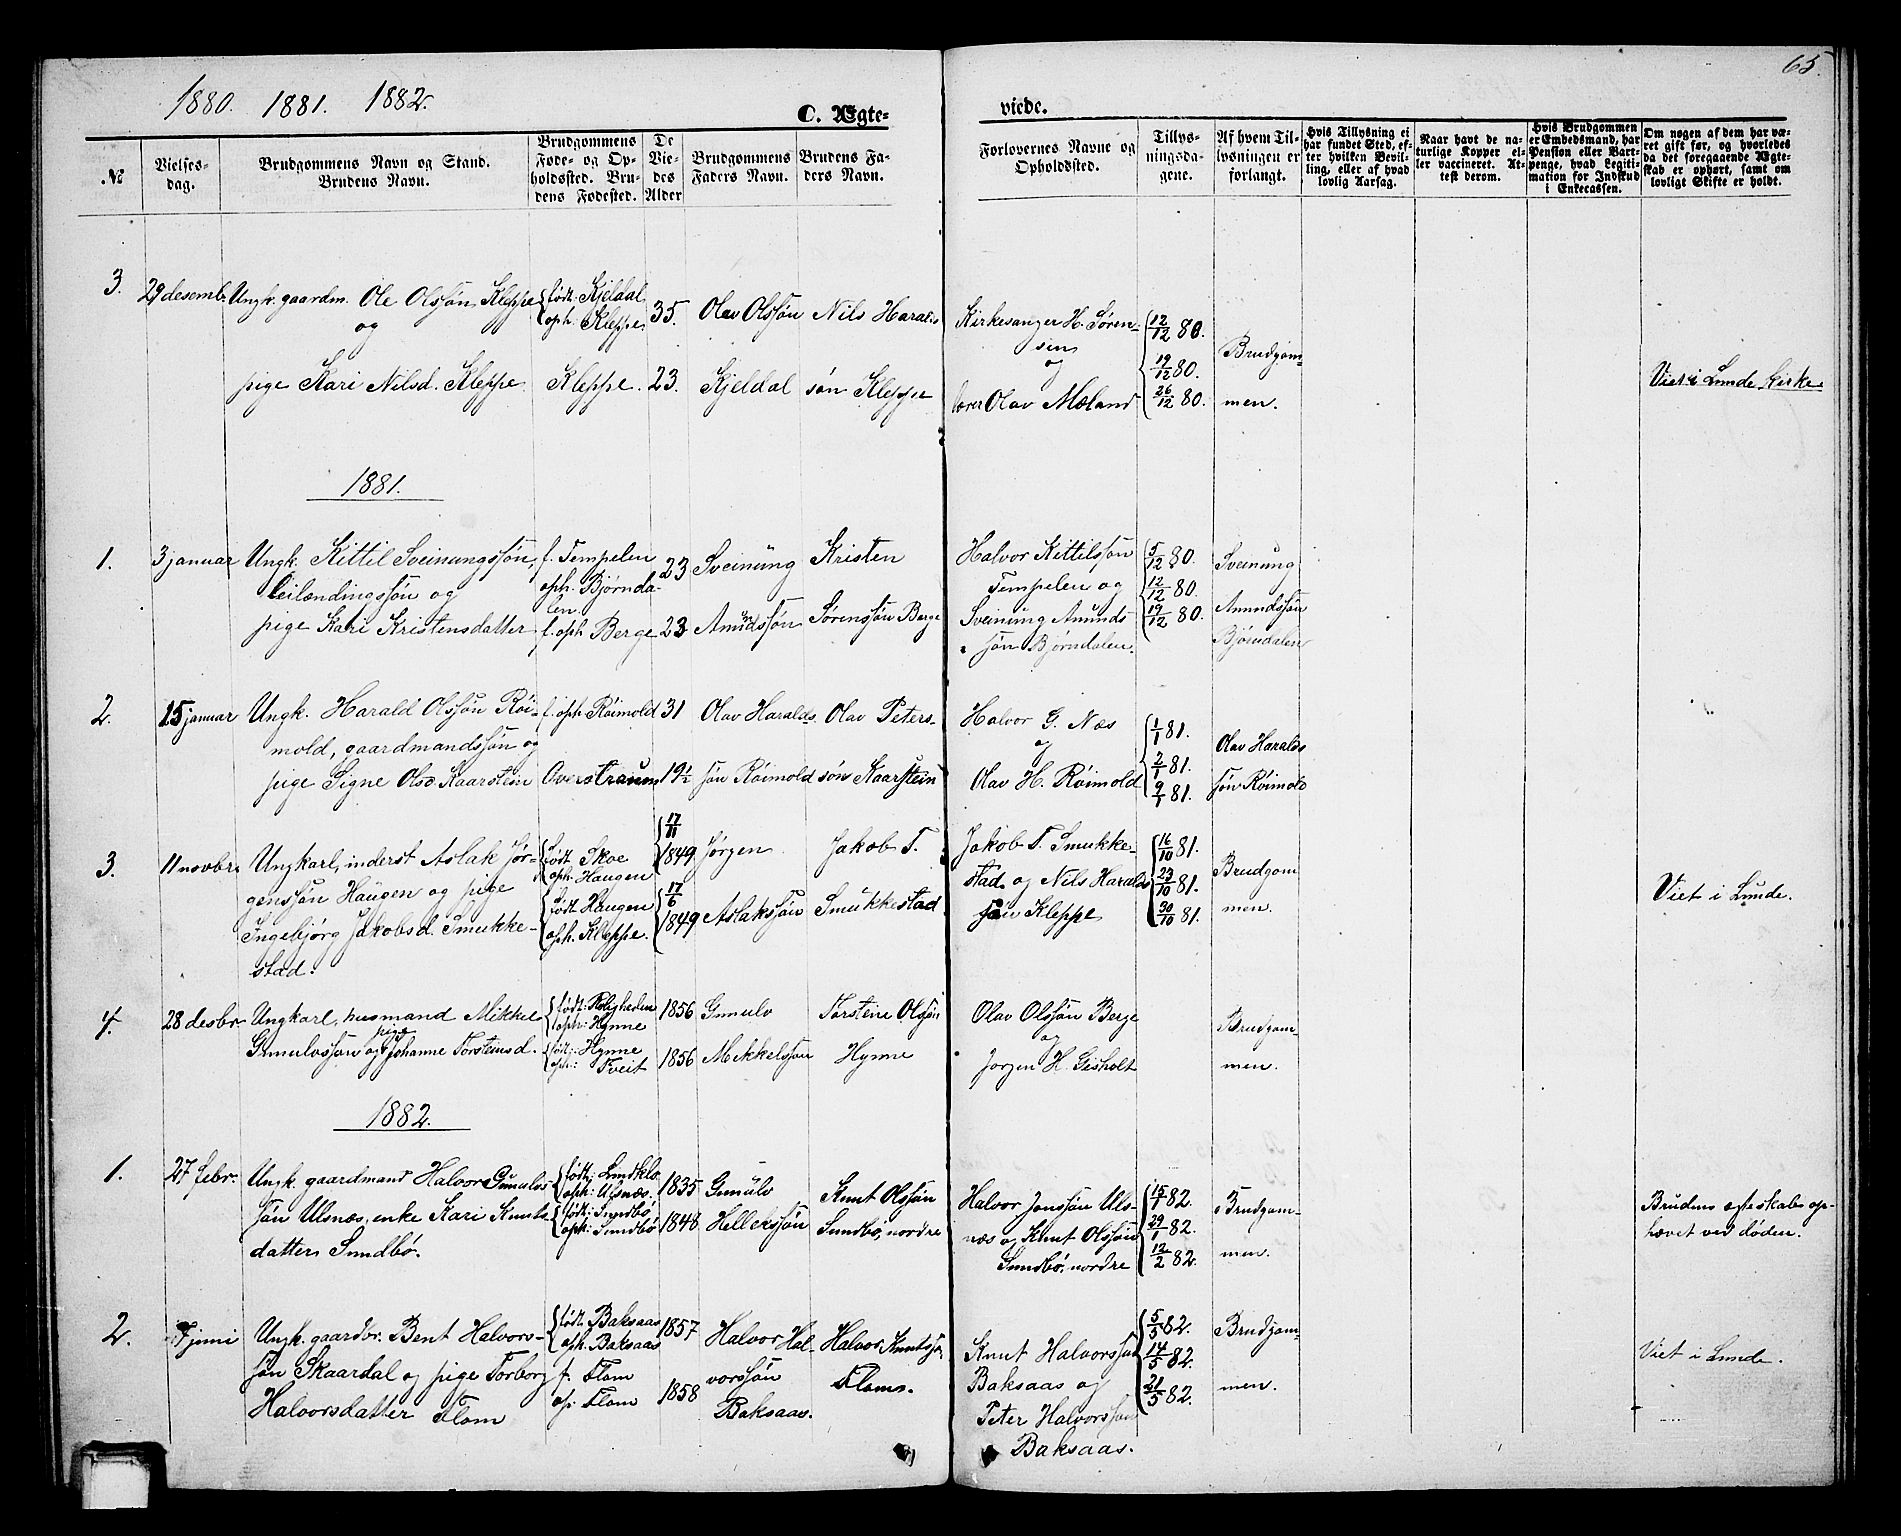 65.
1880. 1881. 1882.
C. Ægte-
viede.
№
Vielses-
dag.
Brudgommens Navn og Stand.
Brudens Navn.
Brudgommens
Føde- og Op-
holdssted. Bru-
dens Fødested.
De
Vie-
des
Alder
Brudgommens
Faders Navn.
Brudens Fa-
ders Navn.
Forlovernes Navne og
Opholdsted.
Tillys-
ningsda-
gene.
Af hvem Til-
lysningen er
forlangt.
Hvis Tillysning ei
har fundet Sted, ef-
ter hvilken Bevil-
ling, eller af hvad
lovlig Aarsag.
Naar havt de na-
turlige Kopper el-
ler vaccineret. At-
test derom.
Hvis Brudgommen
er Embedsmand, har
Pension eller Vart-
penge, hvad Legiti-
mation for Indskud
i Enkecassen.
Om nogen af dem har væ-
ret gift før, og hvorledes
da det foregaaende Ægte-
skab er ophørt, samt om
lovligt Skifte er holdt.
3.
29 desembr.
Ungk. gaardm. Ole Olssøn Kleppe
og
pige Kari Nilsd. Kleppe
født: Kjeldal
oph. Kleppe
Kleppe.
35.
23.
Olav Olssøn
Kjeldal
Nils Haralds
søn Kleppe
Kirkesanger H. Søren-
sen
og
lærer Olav Mæland
12/12 80.
19/12 80.
26/12 80.
Brudgom-
men.
Viet i Lunde kirke
1881.
1.
3 januar
Ungk. Kittil Sveinungssøn,
leilændingssøn og
pige Kari Kristensdatter
f. Tempelen
oph. Bjørnda-
len.
f. oph Berge
23
23
Sveinung
Amundssøn
Kristen
Sørenssøn Berge
Halvor Kittilssøn
Tempelen og
Sveinung Amunds
søn Bjørndalen.
5/12 80.
12/12 80.
19/12 80.
Sveinung
Amundssøn
Bjørndalen
2.
15 januar
Ungk. Harald Olssøn Röi-
mold, gaardmandssøn og
pige Signe Olsd. Kaarstein
f. oph Röimold
Overstraum
31
19½
Olav Haralds
søn Röimold
Olav Peters-
søn Kaarstein
Halvor G. Næs
og
Olav H. Röimold
1/1 81.
2/1 81.
9/1 81.
Olav Haralds
søn Röimold
3.
11 novbr.
Ungkarl, inderst Aslak Jør-
genssøn Haugen og pige
Ingebjørg Jakobsd. Smukke-
stad.
født Skoe
oph. Haugen
født Haugen
oph. Kleppe.
17/11
1849
17/6
1849
Jørgen
Aslakssøn
Jakob T.
Smukkestad
Jakob T. Smukke-
stad og Nils Haralds
søn Kleppe
16/10 81.
23/10 81.
30/10 81.
Brudgom
men.
Viet i Lunde.
4.
28 desbr
Ungkarl, husmand Mikkel
Gunulvssøn og pige Johanne Torsteinsd.
født: Roligheden
oph: Hynne
født: Hynne
oph: Tveit
1856
1856
Gunulv
Mekkelssøn
Torstein Olssøn
Hynne
Olav Olssøn Berge
og
Jørgen H. Gisholt
Brudgom-
men.
1882.
1.
27 febr.
Ungk. gaardmand Halvor Gunulvs-
søn Ulsnæs, enke Kari Knuts-
datter Sundbø.
født: Lindklo
oph: Ulsnæs.
født: Sundbø
oph: Sundbø
1835
1848
Gunulv
Hellekssøn
Knut Olssøn
Sundbø, nordre
Halvor Jonssøn Uls-
næs og Knut Olssøn
Sundbø, nordre
15/1 82.
29/1 82.
12/2 82.
Brudgom-
men.
Brudens egteskab op-
hævet ved døden.
2.
juni
Ungk. gaardbr. Bent Halvors-
søn Skaardal og pige Torborg
Halvorsdatter Flom
født Baksaas
oph. Baksaas
f. Flom
op. Flom
1857
1858
Halvor Hal-
vorssøn
Baksaas.
Halvor Knutssøn
Flom.
Knut Halvorssøn
Baksaas og
Peter Halvorssøn
Baksaas.
5/5 82.
14/5 82.
21/5 82.
Brudgom-
men.
Viet i Lunde.